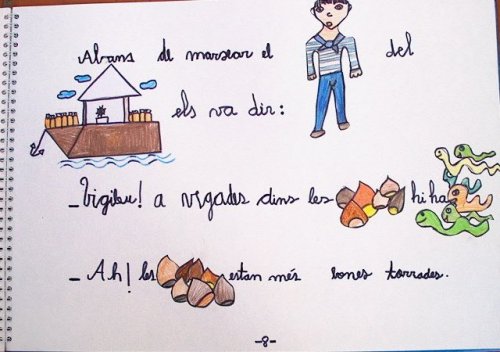 Abans de marxar el del
els va dir:
-Vigileu! a vegades dins les hi ha
-Ah! les estan més bones torrades.
-8-